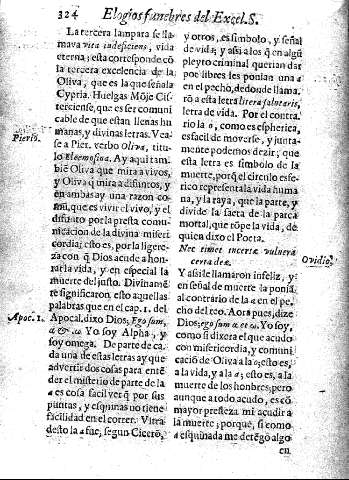 324 Elogios funebres del Excel. S.
La tercera lampara se lla-
mava vita indeficiens, vida
eterna; esta corresponde cõ
la tercera excelencia de la
Oliva, que es la que señala
Cypria. Huelgas Mõje Cis-
terciense, que es ser comuni
cable de que estan llenas hu
manas, y divinas letras. Vea-
Pierio.
se a Pier. verbo Oliva, titu-
lo Eleemosina. Ay aqui tam-
biẽ Oliva que mira a vivos,
y Oliva q̃ mira a difuntos, y
en ambas ay una razon co-
mũ, que es vivir el vivo, y el
difũto por la presta comu-
nicacion de la divina miseri
cordia; esto es, por la ligere-
za con q̃ Dios acude a hon-
rar la vida, y en especial la
muerte del justo. Divinamẽ
te significaron esto aquellas
palabras que en el cap. 1. del
Apoc. 1.
Apocal. dixo Dios, Ego sum,
α & ω. Yo soy Alpha, y
soy omega. De parte de ca-
da una de estas letras ay que
advertir dos cosas para entẽ
der el misterio de parte de la
a es cosa facil ver q̃ por sus
puntas, y esquinas no tiene
facilidad en el correr. Vitra
desto la a fue, segun Cicerõ,
y otros, es simbolo, y señal
de vida; y assi a los q̃ en algũ
pleyto criminal querian dar
por libes les ponian una a
en el pecho, de donde llama-
rõ a esta letra litera salutaris,
letra de vida. Por el contra-
rio la o, como es espherica,
es facil de moverse, y junta-
mente podemos dezir, que
esta letra es simbolo de la
muerte, porq̃ el circulo esfe-
rico representa la vida huma
na, y la raya, que la parte, y
divide la saeta de la parca
mortal, que rõpe la vida, de
quien dixo el Poeta.
Nec timet incertæ vulnera
Ovidio.
certa deæ.
Y assi le llamaron infeliz, y
en señal de muerte la poniã
al contrario de la a en el pe-
cho del reo. Aora pues, dize
Dios; ego sum α et ω. Yo soy,
como si dixera el que acudo
con misericordia, y comuni
cació de Oliva a la o; esto es,
a la vida, y a la a; esto es, a la
muerte de los hombres; pero
aunque a todo acudo, es cõ
mayor presteza mi acudir a
la muerte; porque, si como
a esquinada me detẽgo algo
en